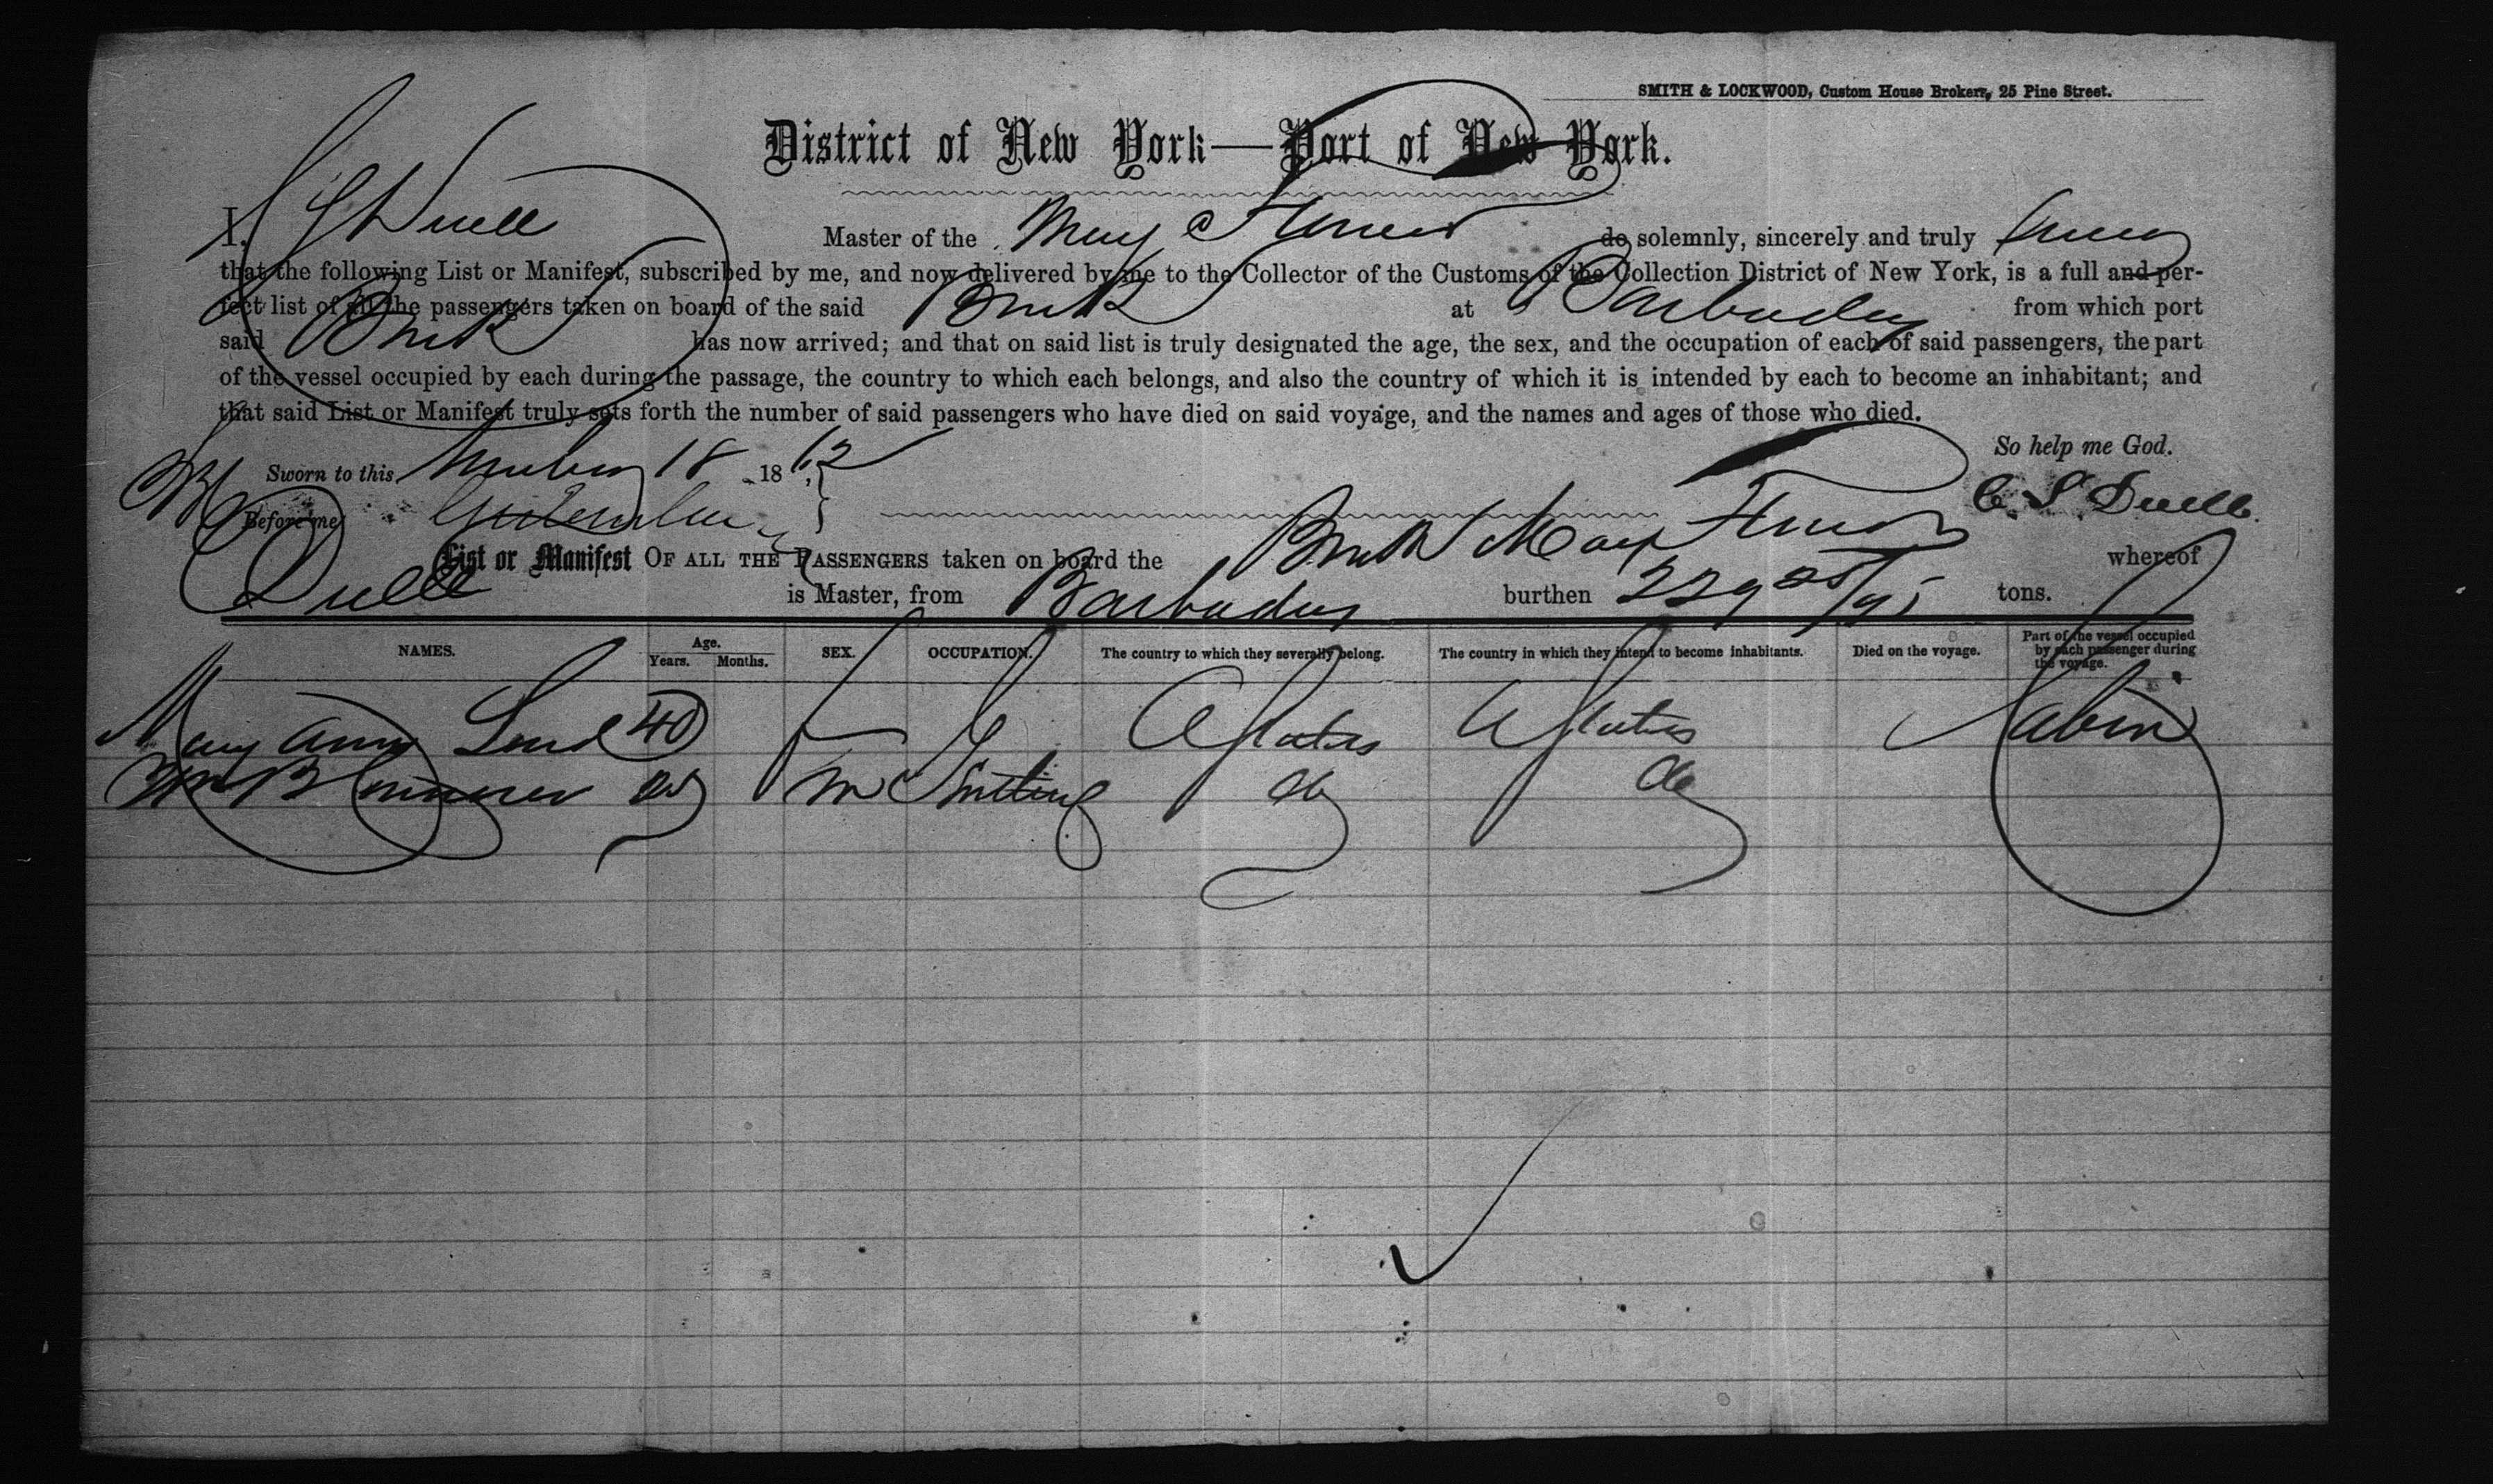 SMITH & LOCKWOOD, Custom House Brokers, 25 Pine Street.
District of New York—Port of New York.
I, C S Duell Master of the May Flower do solemnly, sincerely and truly swear
that the following List or Manifest, subscribed by me, and now delivered by me to the Collector of the Customs of the Collection District of New York, is a full and per-
fect list of all the passengers taken on board of the said Brick at Barbados from which port
said Brick has now arrived; and that on said list is truly designated the age, the sex, and the occupation of each of said passengers, the part
of the vessel occupied by each during the passage, the country to which each belongs, and also the country of which it is intended by each to become an inhabitant; and
that said List or Manifest truly sets forth the number of said passengers who have died on said voyage, and the names and ages of those who died.
So help me God.
Sworn to this 18 1862
Before me C. S. Duell
List or Manifest OF ALL THE PASSENGERS taken on board the May Flower whereof
Duell is Master, from Barbados burthen 229 tons.
NAMES. Age. Years. Months. SEX. OCCUPATION. The country to which they severally belong. The country in which they intend to become inhabitants. Died on the voyage. Part of the vessel occupied by each passenger during the voyage.
Mary Ann 40 U States U States Cabin
Wm B m do do